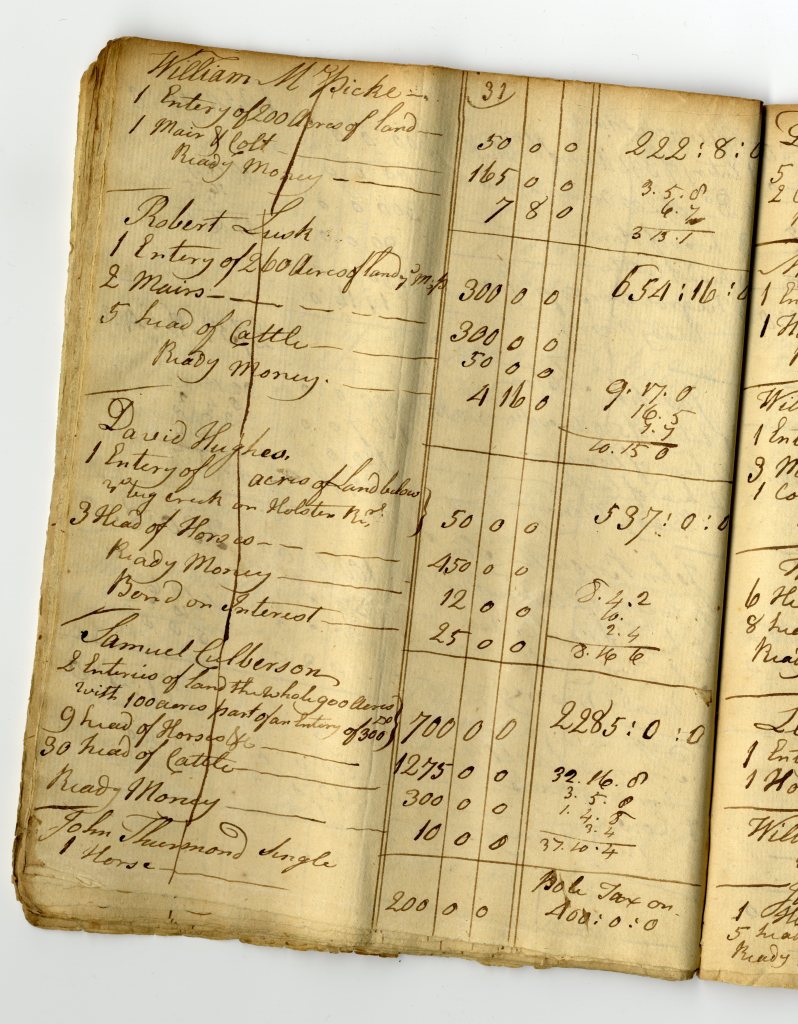 31
William McBicke
1 Entery of 200 Acres of land 50 0 0 222:8:0
1 Mair & Colt 165 0 0 3.5.8
Ready Money 7 8 0 6.7
3 13.1
Robert Lusk
1 Entery of 260 Acres of land 300 0 0 654:16:0
2 Mairs 300 0 0
5 head of Cattle 50 0 0
Ready Money. 4 16 0 9.17.0
16.5
10.15 0
David Hughes.
1 Entery of acres of land below
creek on Holsten Rivr 50 0 0 537:0:0
3 Head of Horses 450 0 0
Ready Money 12 0 0 8.4.2
10.
Bond on Interest 25 0 0 2.4
8.16 6
Samuel Culberson
2 Enteries of land the whole 900 Acres
with 100 acres part of an Entery of 300 700 0 0 2285:0:0
9 head of Horses &c 1275 0 0 32.16.8
30 head of Cattle 300 0 0 3.5.8
1.4.8
Ready Money 10 0 0 3.4
37.10.4
John Thurmond Single Pole Tax on
1 Horse 200 0 0 400:0:0
5
2
1
1
Wil
1
3
1
6
8
Read
1
1
Will
1
5 hea
Ready